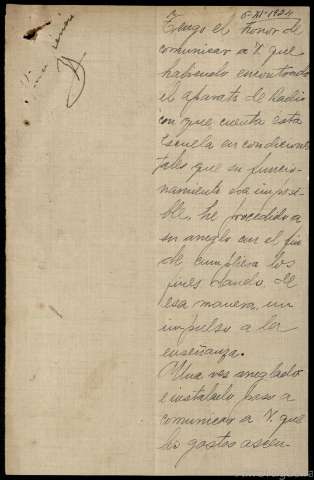 6-XI-1924
Tengo el honor de
comunicar a V. que
habiendo encontrado
el aparato de Radio
con que cuenta esta
Escuela en condiciones
tales que su funcio-
namiento era imposi-
ble, he procedido a
su arreglo con el fin
de cumpliera los
fines dando de
esa manera un
impulso a la
enseñanza.
Una vez arreglado
e instalado, paso a
comunicar a V. que
los gastos ascien-